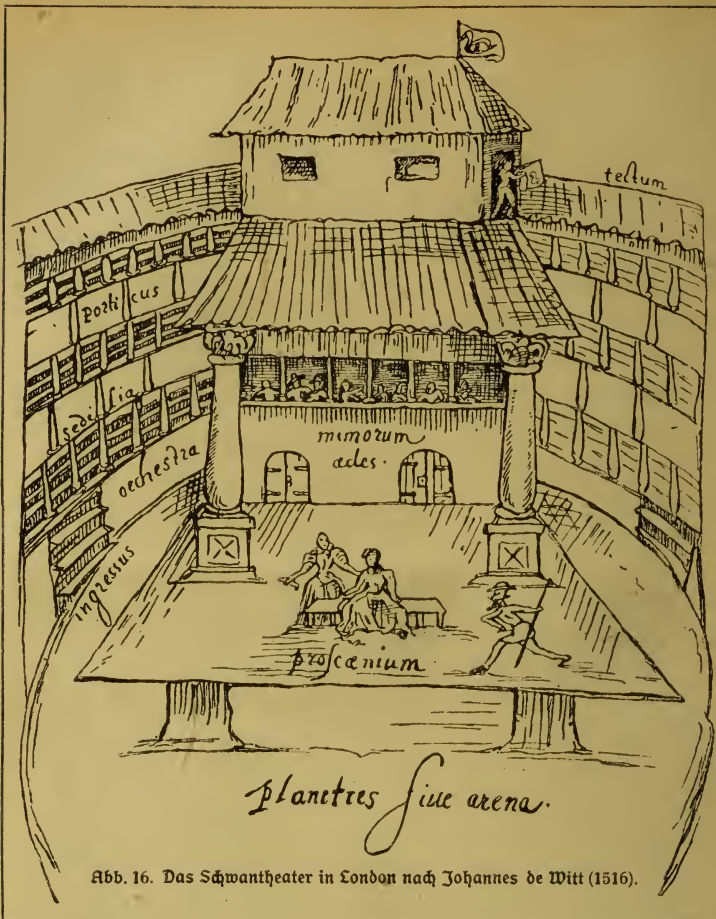 tectum
porticus
sedilia
orchestra
mimorum
ædes.
ingressus
proſcænium.
planities ſiue arena.
Abb. 16. Das Schwantheater in London nach Johannes de Witt (1516).